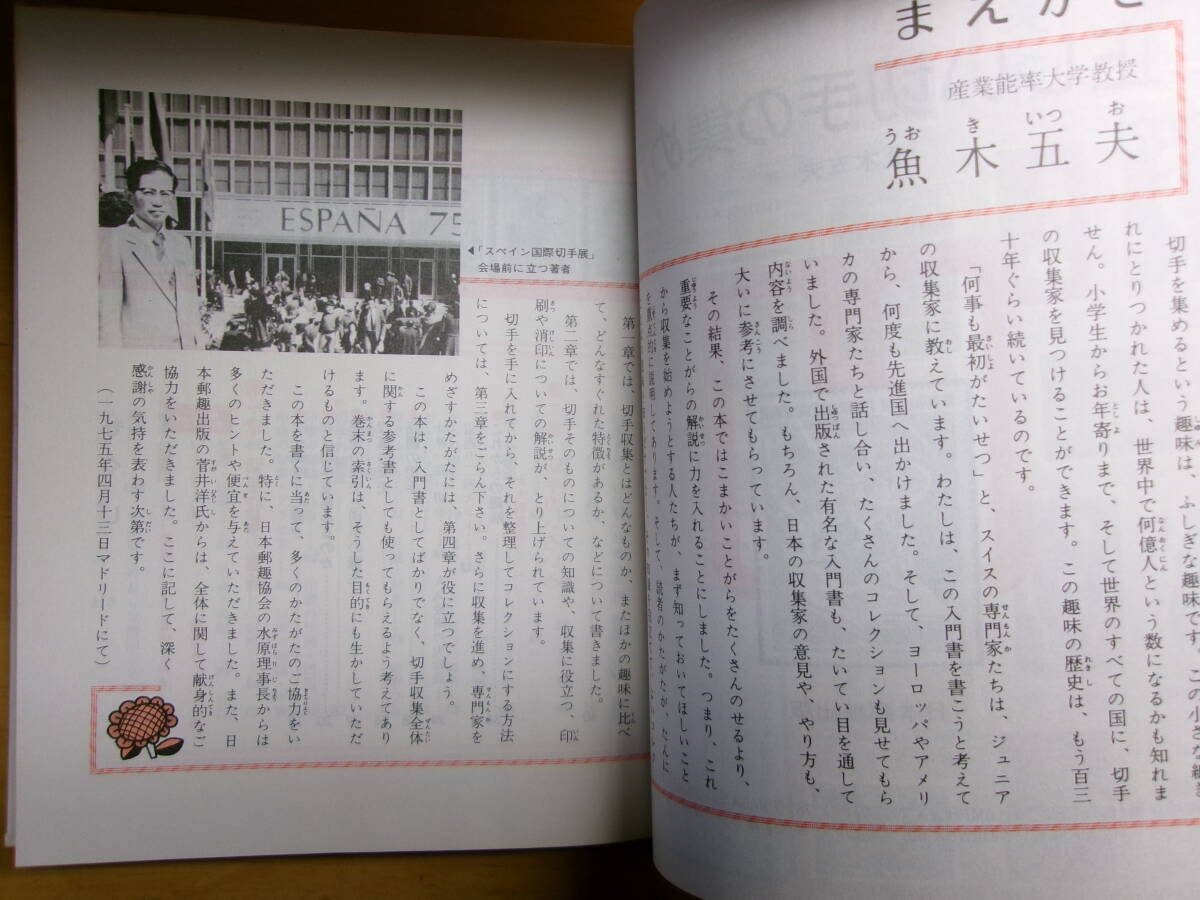 まえがき
産業能率大学教授
魚木五夫
うお き いつ お
切手を集めるという趣味は、ふしぎな趣味です。この小さな紙き
れにとりつかれた人は、世界中で何億人という数になるかも知れま
せん。小学生からお年寄りまで、そして世界のすべての国に、切手
の収集家を見つけることができます。この趣味の歴史は、もう百三
十年ぐらい続いているのです。
「何事も最初がたいせつ」と、スイスの専門家たちは、ジュニア
の収集家に教えています。わたしは、この入門書を書こうと考えて
から、何度も先進国へ出かけました。そして、ヨーロッパやアメリ
カの専門家たちと話し合い、たくさんのコレクションも見せてもら
いました。外国で出版された有名な入門書も、たいてい目を通して
内容を調べました。もちろん、日本の収集家の意見や、やり方も、
大いに参考にさせてもらっています。
その結果、この本ではこまかいことがらをたくさんのせるより、
重要なことがらの解説に力を入れることにしました。つまり、これ
から収集を始めようとする人たちが、まず知っておいてほしいこと
を重点的に説明してあります。そして、読者のかたがたが、たんに
◀「スペイン国際切手展」
会場前に立つ著者
ESPAÑA 75
第一章では、切手収集とはどんなものか、またほかの趣味に比べ
て、どんなすぐれた特徴があるか、などについて書きました。
第二章では、切手そのものについての知識や、収集に役立つ、印
刷や消印についての解説が、とり上げられています。
切手を手に入れてから、それを整理してコレクションにする方法
については、第三章をごらん下さい。さらに収集を進め、専門家を
めざすかたがたには、第四章が役に立つでしょう。
この本は、入門書としてばかりでなく、切手収集全体
に関する参考書としても使ってもらえるよう考えてあり
ます。巻末の索引は、そうした目的にも生かしていただ
けるものと信じています。
この本を書くに当って、多くのかたがたのご協力をい
ただきました。特に、日本郵趣協会の水原理事長からは
多くのヒントや便宜を与えていただきました。また、日
本郵趣出版の菅井洋氏からは、全体に関して献身的なご
協力をいただきました。ここに記して、深く
感謝の気持を表わす次第です。
(一九七五年四月十三日マドリードにて)